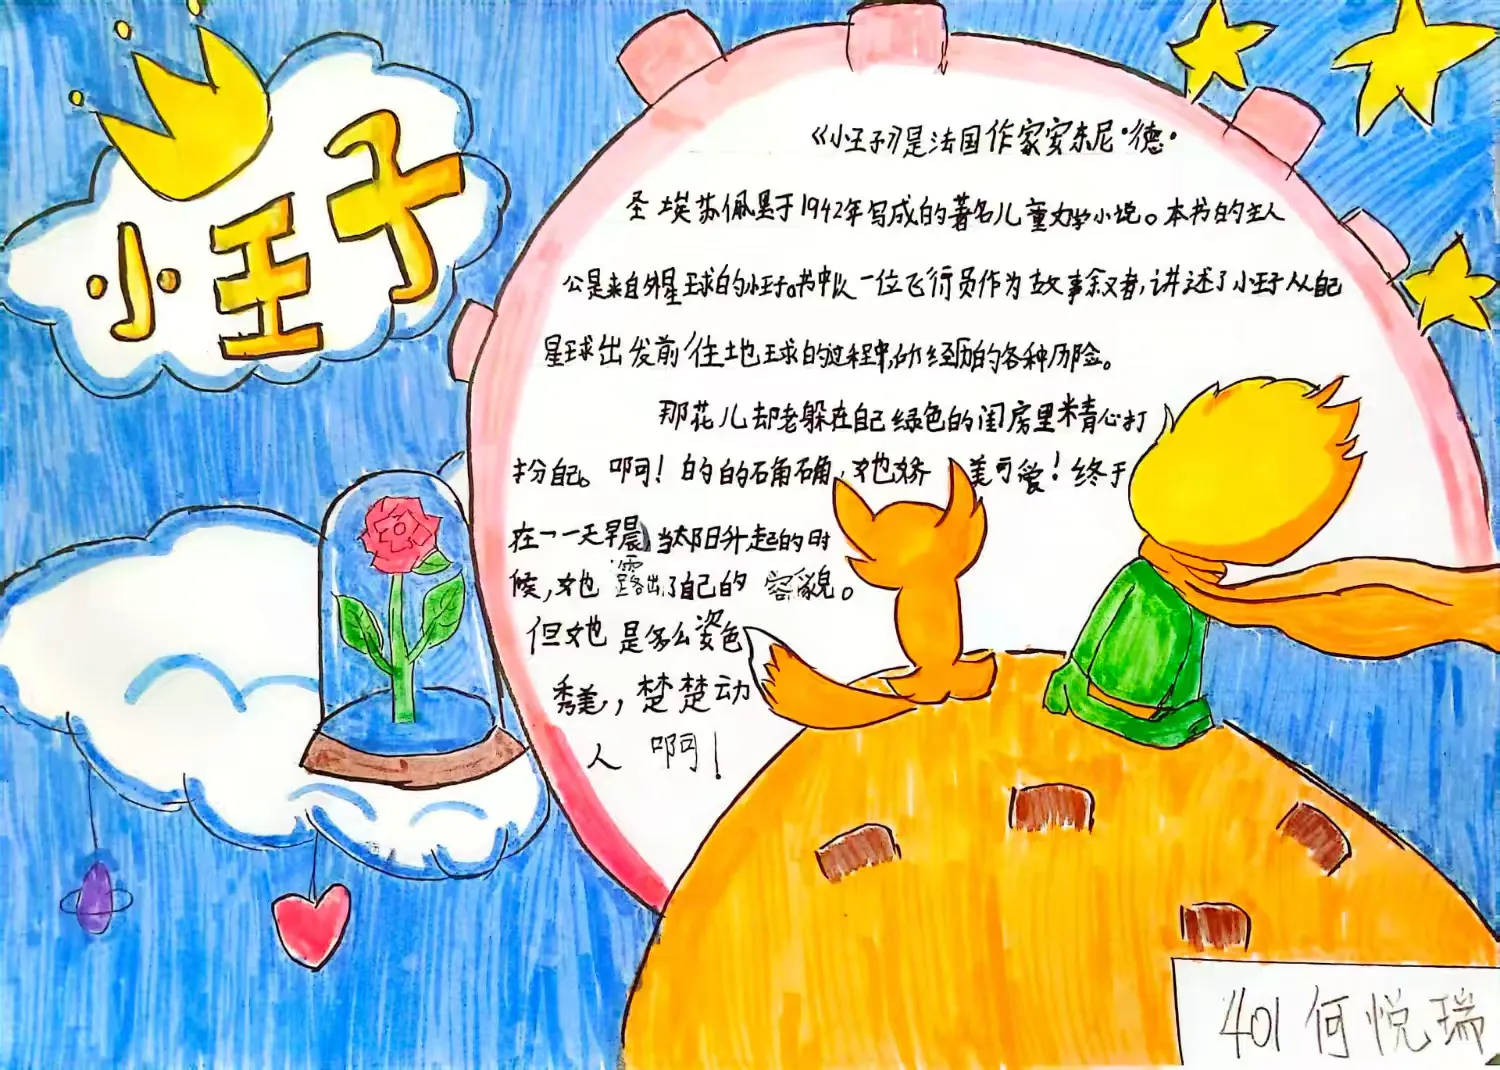 小王子
《小王子》是法国作家安东尼·德·
圣埃苏佩里于1942年写成的著名儿童文学小说。本书的主人
公是来自外星球的小王子。书中以一位飞行员作为故事叙述者,讲述了小王子从自己
星球出发前往地球的过程中,所经历的各种历险。
那花儿却老躲在自己绿色的闺房里精心打
扮自己。啊!的的确确,她娇 美可爱!终于
在一一天早晨,当太阳升起的时
候,她 露出了自己的 容貌。
但她 是多么姿色
秀美,楚楚动
人 啊!
401 何悦瑞